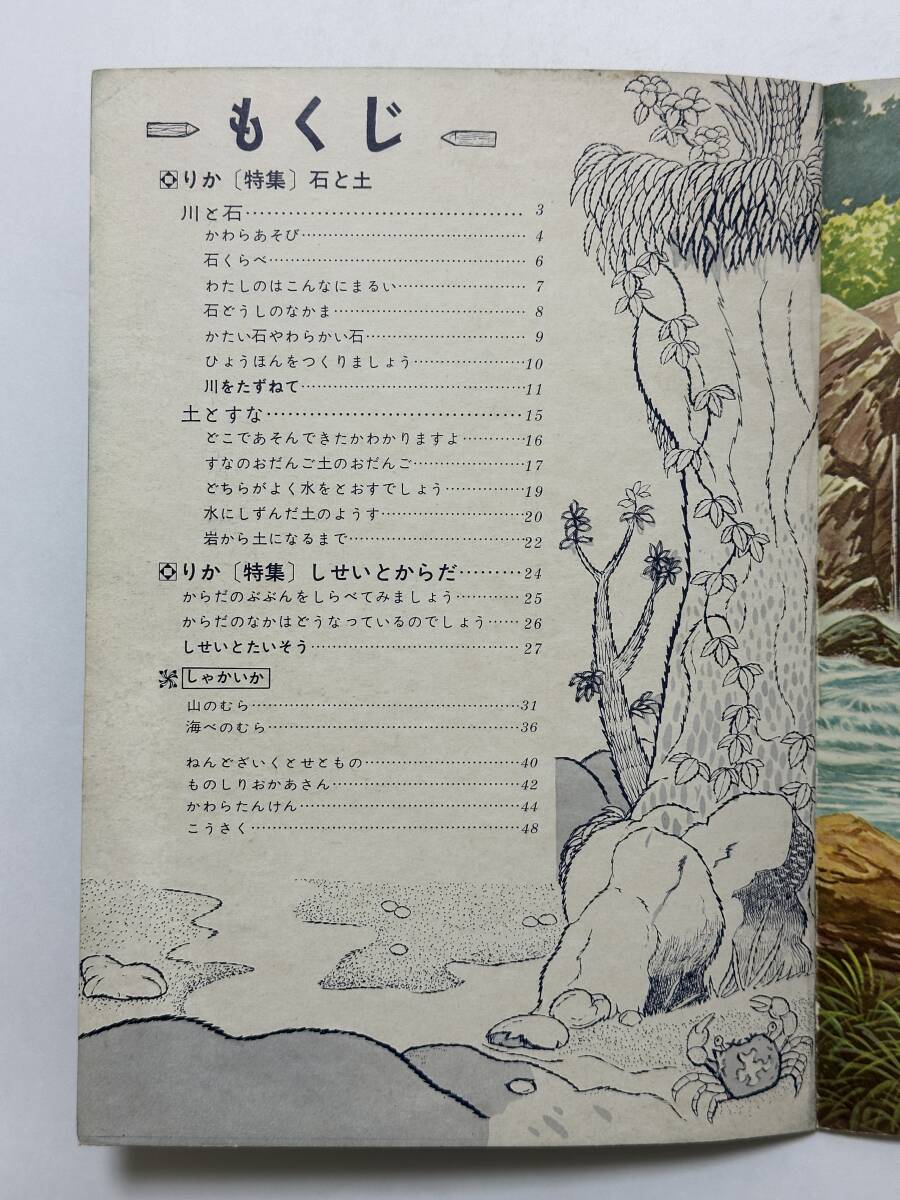 もくじ
りか〔特集〕石と土
川と石……………………………… 3
かわらあそび……………………………… 4
石くらべ……………………………… 6
わたしのはこんなにまるい……………… 7
石どうしのなかま……………………… 8
かたい石やわらかい石……………………… 9
ひょうほんをつくりましょう……………10
川をたずねて……………………………11
土とすな………………………………15
どこであそんできたかわかりますよ…………16
すなのおだんご土のおだんご……………17
どちらがよく水をとおすでしょう…………19
水にしずんだ土のようす…………………20
岩から土になるまで……………………22
りか〔特集〕しせいとからだ………24
からだのぶぶんをしらべてみましょう…………25
からだのなかはどうなっているのでしょう……26
しせいとたいそう……………………………27
しゃかいか
山のむら……………………………31
海べのむら……………………………36
ねんどざいくとせともの…………………40
ものしりおかあさん……………………42
かわらたんけん…………………………44
こうさく………………………………48